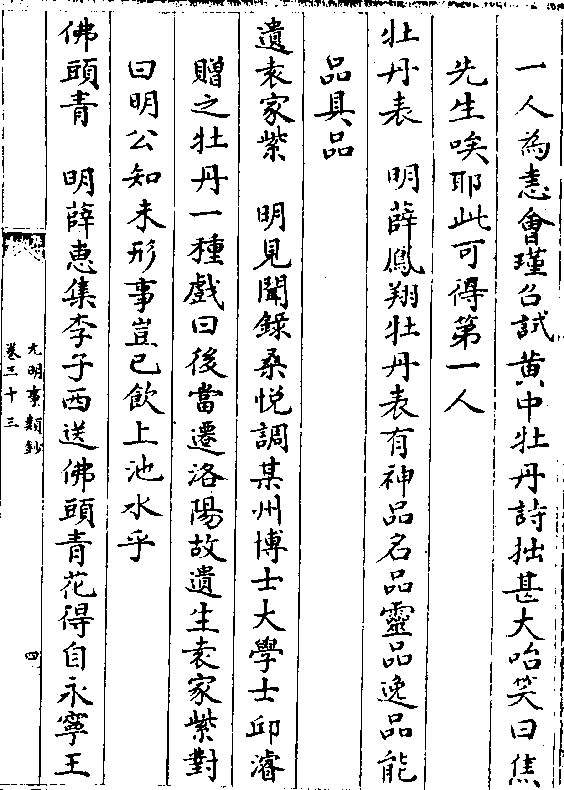 一人為恚會瑾召試黄中牡丹詩拙甚大咍笑曰焦
先生唉耶此可得第一人
牡丹表　明薛鳳翔牡丹表有神品名品靈品逸品能
品具品
遺袁家紫　明見聞錄桑悅調某州博士大學士邱濬
贈之牡丹一種戲曰後當遷洛陽故遺生袁家紫對
曰明公知未形事豈已飲上池水乎
佛頭青　明薛惠集李子西送佛頭青花得自永寧王
元明事類鈔
卷三十三
四